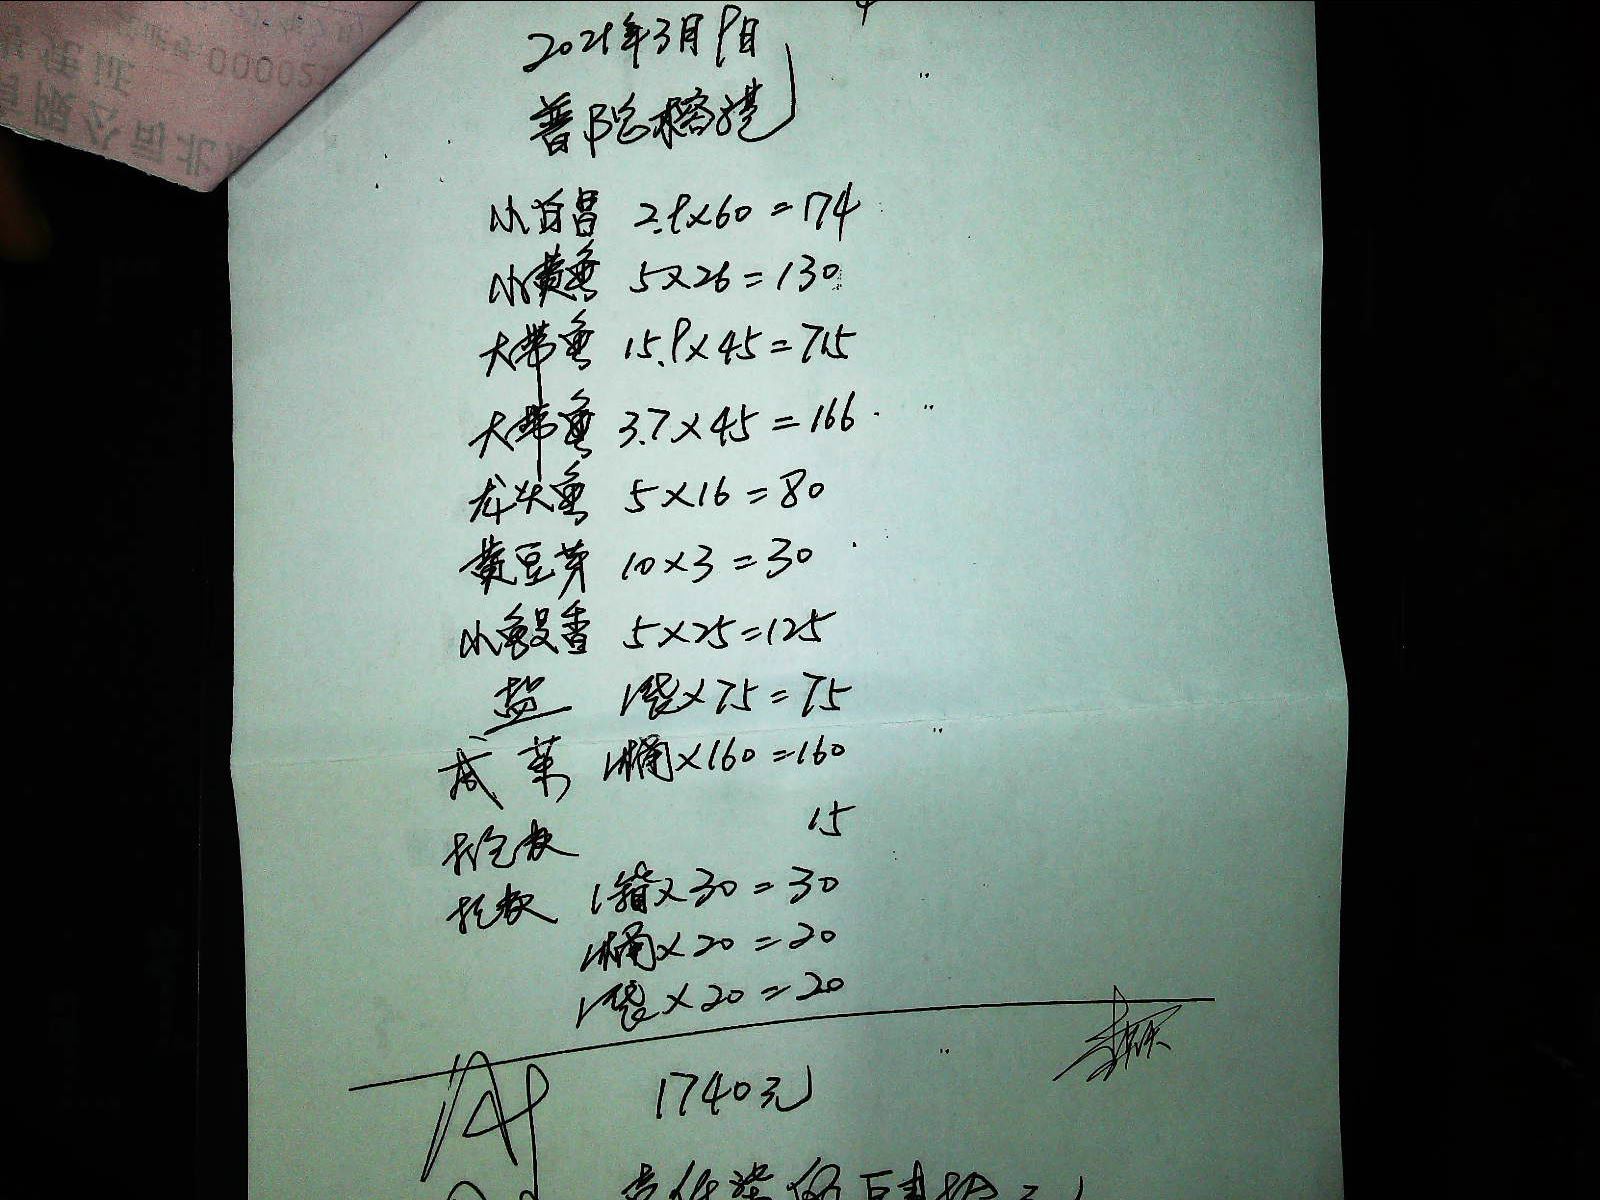 00005
有限公司北
2021年3月9日
普陀榕港
小白昌 2.9×60=174
小黄鱼 5×26=130
大带鱼 15.9×45=715
大带鱼 3.7×45=166
龙头鱼 5×16=80
黄豆芽 10×3=30
小鳗香 5×25=125
盐 1袋×75=75
咸菜 1桶×160=160
15
1箱×30=30
1桶×20=20
1袋×20=20
1740元